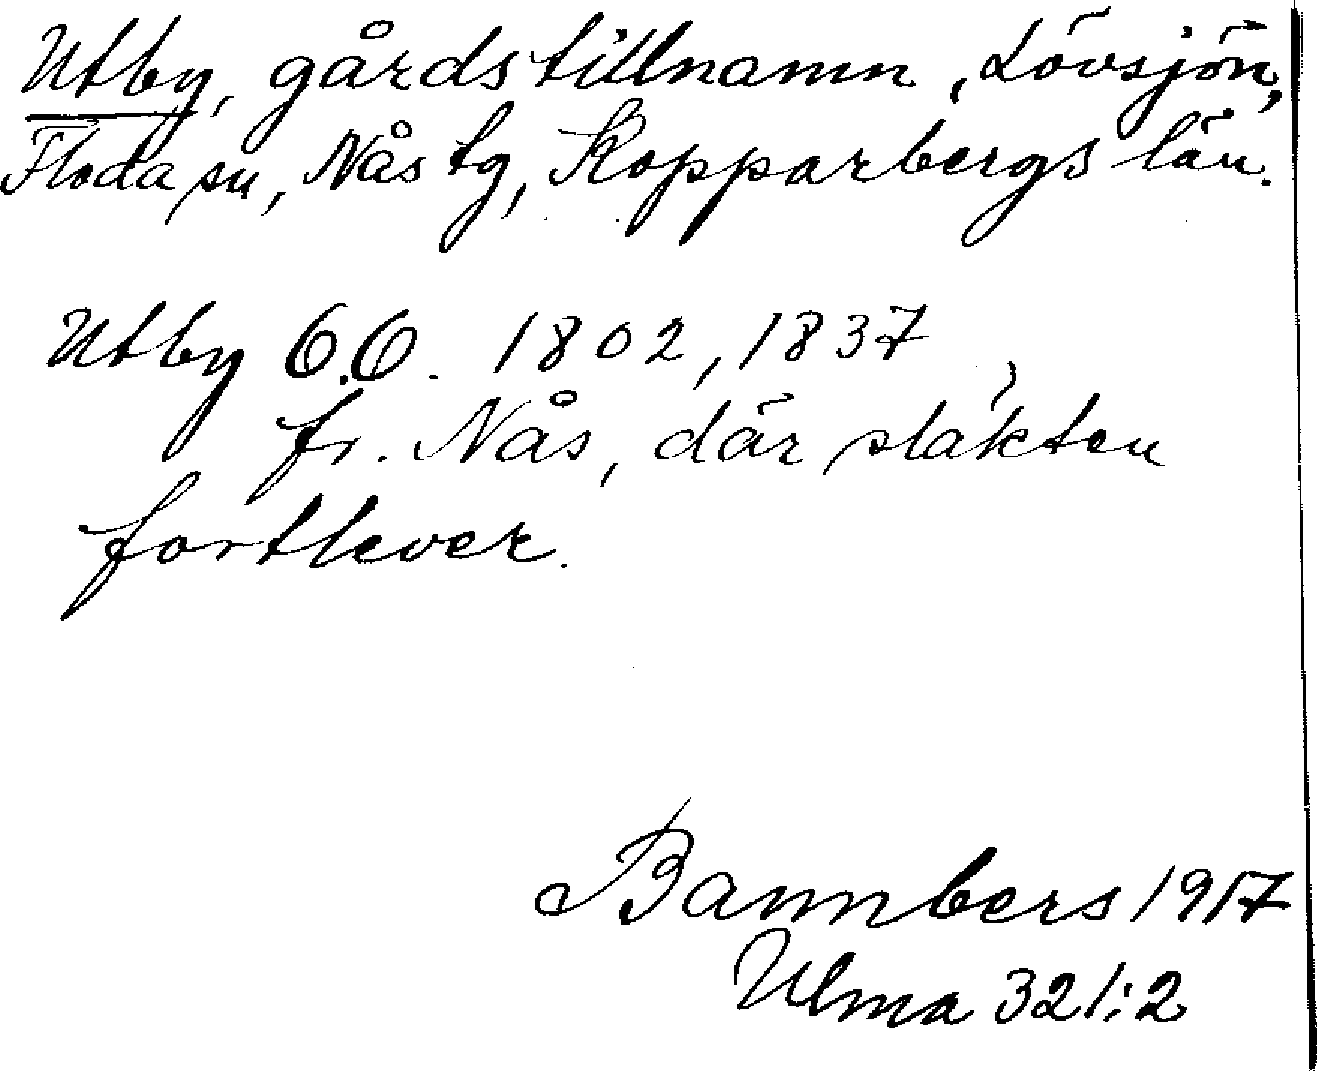 Utby, gårdstillnamn, Lövsjön,
Floda sn, Nås tg, Kopparbergs län.
Utby O.O. 1802, 1837
fr. Nås, där släkten
fortlever.
Bannbers 1917
Ulma 321:2